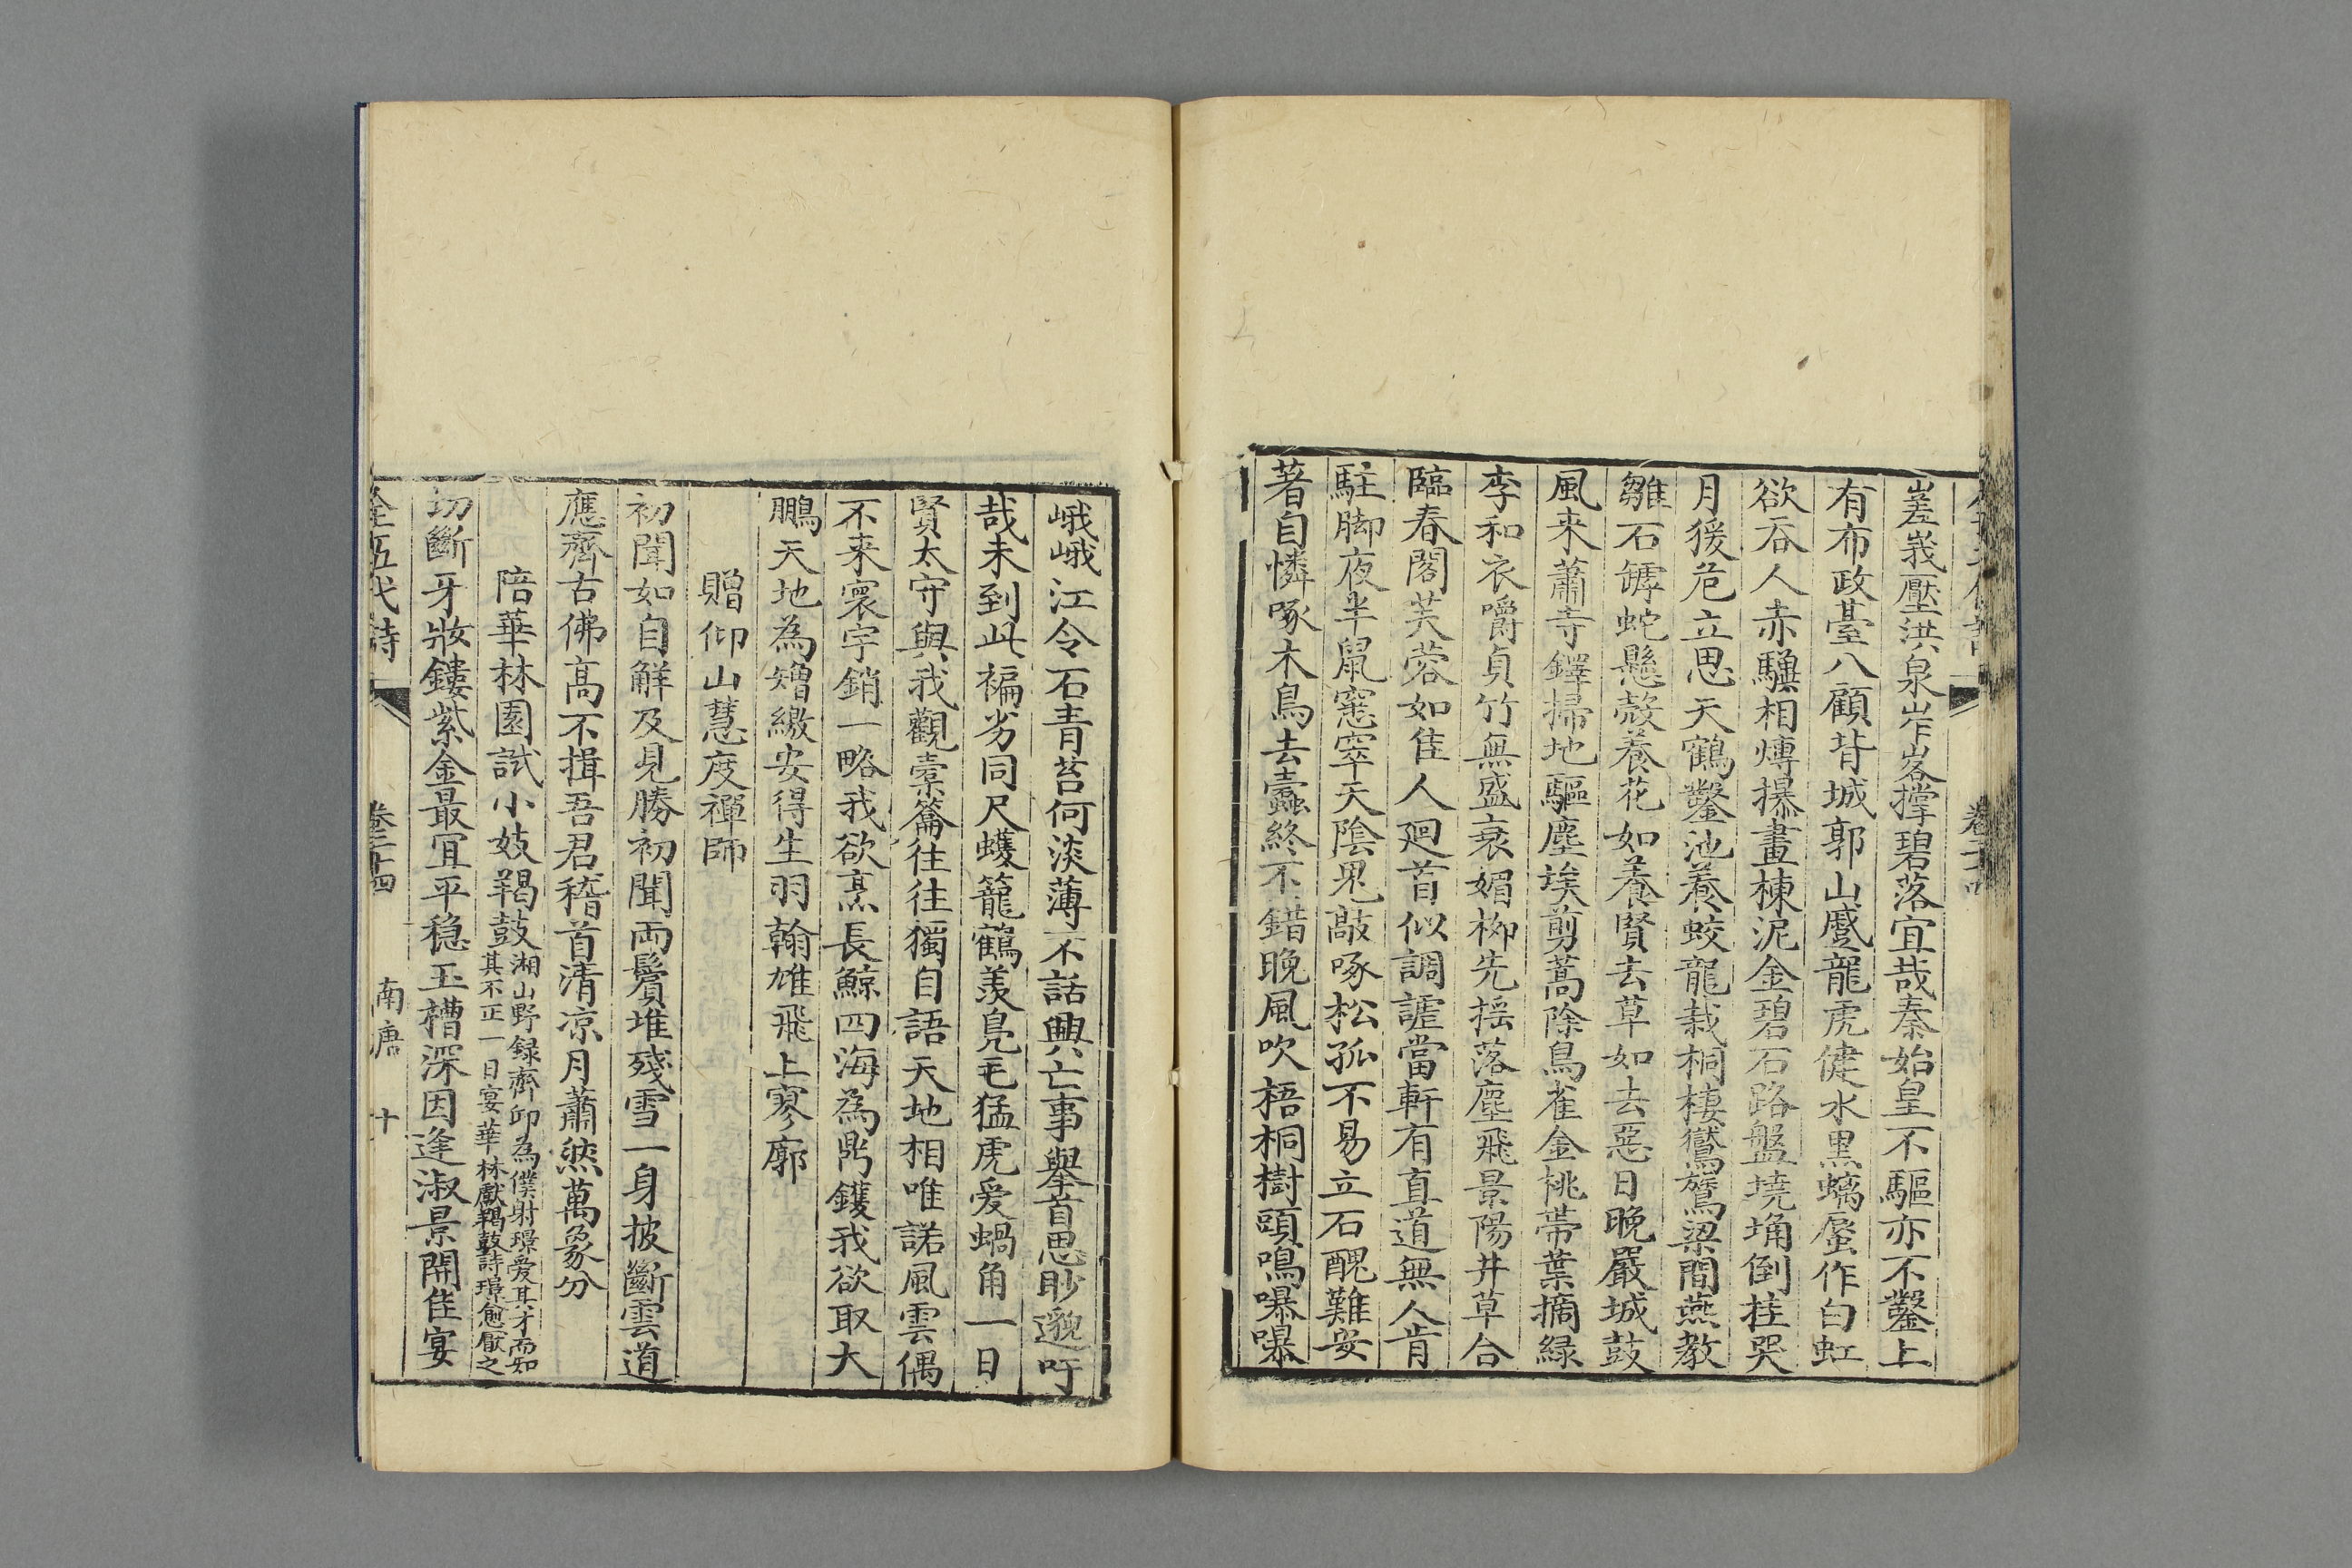 嵳峩壓洪泉岝峉撑碧落宜哉秦始皇不驅亦不鑿上
有布政臺八顧背城郭山蹙龍虎健水黑螭蜃作白虹
欲吞人赤驥相煿㸑畫棟泥金碧石路盤墝埆倒挂哭
月猨危立思天鶴鑿池養蛟龍栽桐棲鸑鷟梁間燕教
雛石罅蛇懸殻養花如養賢去草如去惡日晚嚴城鼓
風来蕭寺鐸掃地驅塵埃剪蒿除鳥雀金桃蔕葉摘緑
李和衣嚼貞竹無盛衰媚柳先摇落塵飛景陽井草合
臨春閣芙蓉如佳人廻首似調謔當軒有直道無人肯
駐脚夜半鼠窸窣天陰鬼敲啄松孤不易立石醜難安
著自憐啄木鳥去蠹終不錯晚風吹梧桐樹頭鳴嚗嚗
峨峨江令石青苔何淡薄不話興亡事舉首思眇邈吁
哉未到此褊劣同尺蠖籠鶴羨鳧毛猛虎愛蝸角一日
賢太守與我觀橐籥往往獨自語天地相唯諾風雲偶
不来寰宇銷一略我欲烹長鯨四海為鼎鑊我欲取大
鵬天地為矰繳安得生羽翰雄飛上寥廓
贈仰山慧度禪師
初聞如自解及見勝初聞兩鬢堆殘雪一身披斷雲道
應齊古佛高不揖吾君稽首清凉月蕭然萬象分
陪華林園試小妓羯鼓湘山野録齊卲為僕射璟愛其才而知
其不正一日宴華林獻羯鼓詩璟愈厭之
切斷牙牀鏤紫金最宜平穏玉槽深因逢淑景開佳宴
全五代詩 卷三十四 南唐 十